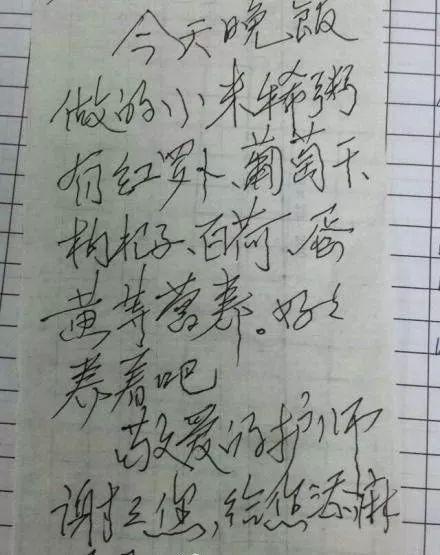 今天晚飯
做的小米稀粥
有红罗卜、葡萄干、
枸杞子、百荷、蛋
黄等营养。好々
养着吧
敬爱的护师
谢々您,给您添麻